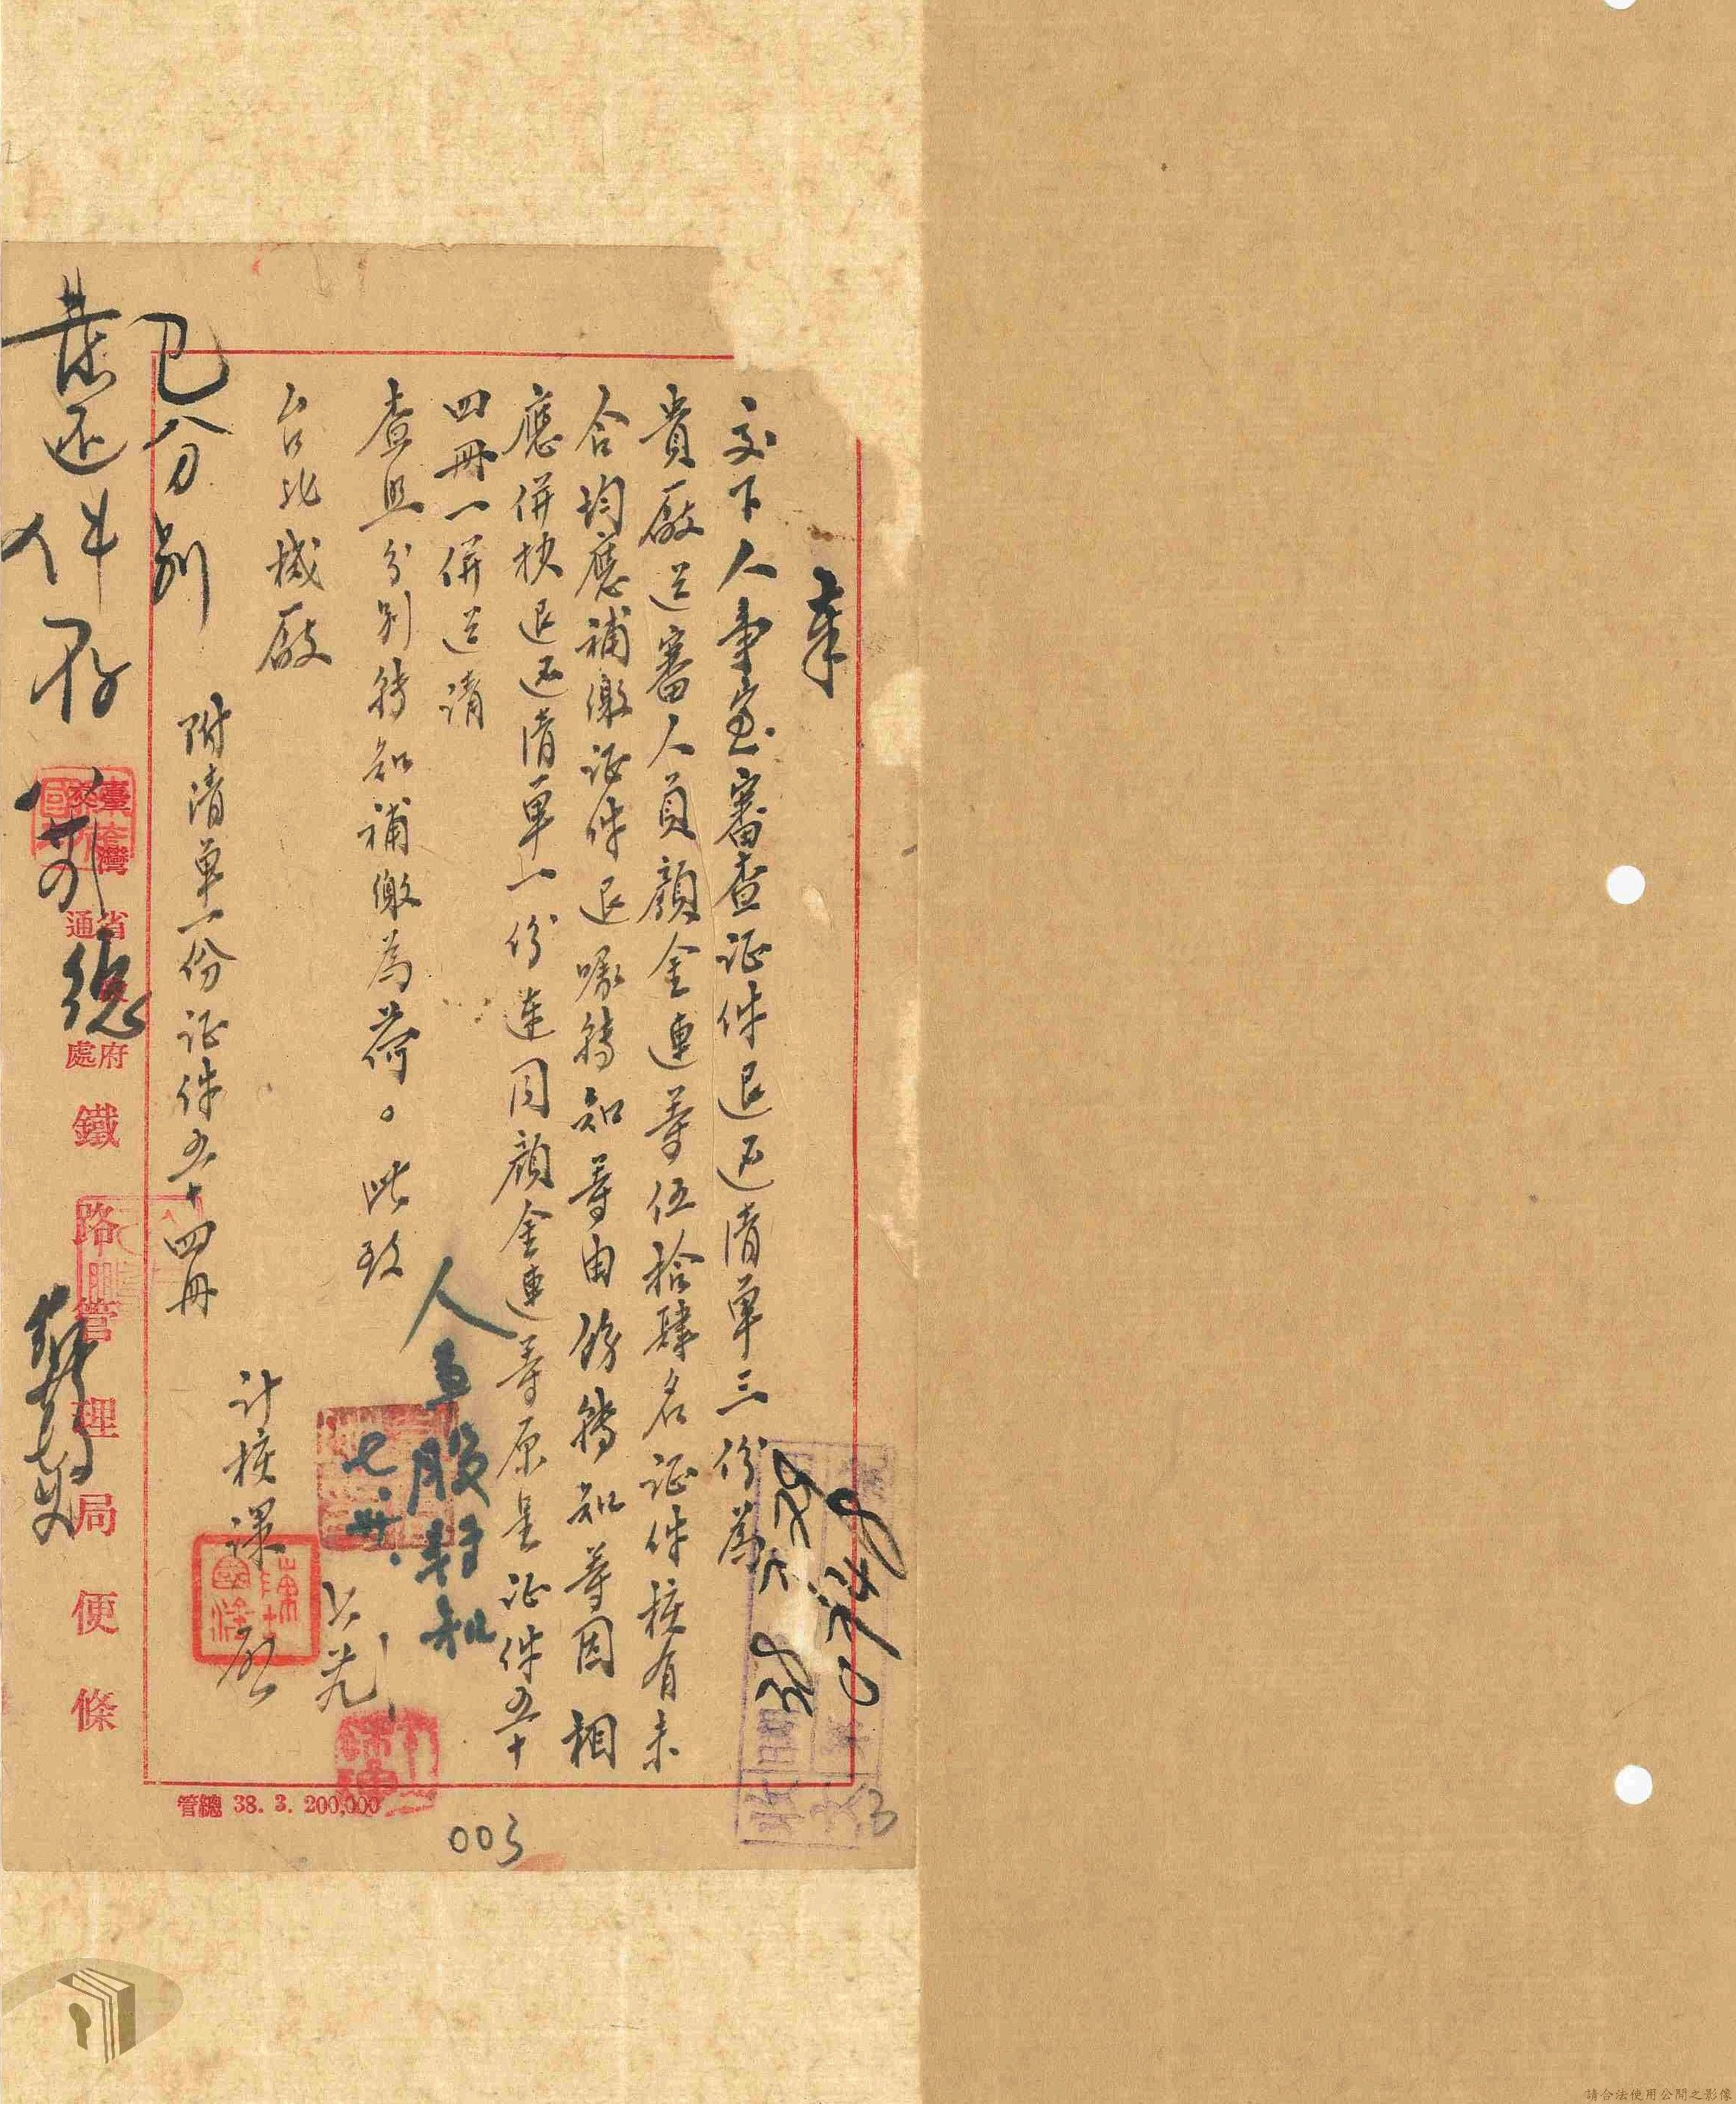 奉
交下人事室審查证件退还清单三份為
貴廠送審人員顏金連等伍拾肆名证件核有未
合均應補繳证件退囑转知等由飭转知等因相
應併抉退还清单一份连同顏金連等原呈证件五十
四冊一併送請
查照分别转知補繳為荷。此致
台北機廠
附清单一份证件五十四冊
計核課 啟
人事股转知
七.卅.
已分别
发还件存
臺灣省政府交通處鐵路管理局便條
管總 38. 3. 200,000
003
請合法使用公開之影像